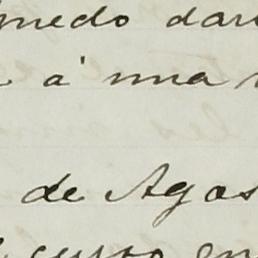 medo dar
á una
de Agos
curso en